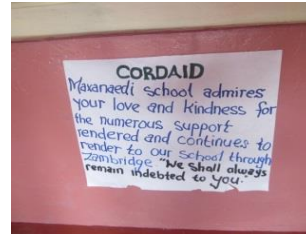 CORDAID
Maxanaedi school admires
your love and kindness for
the numerous support
rendered and continues to
render to our school through
Zambridge "We shall always
remain indebted to you."